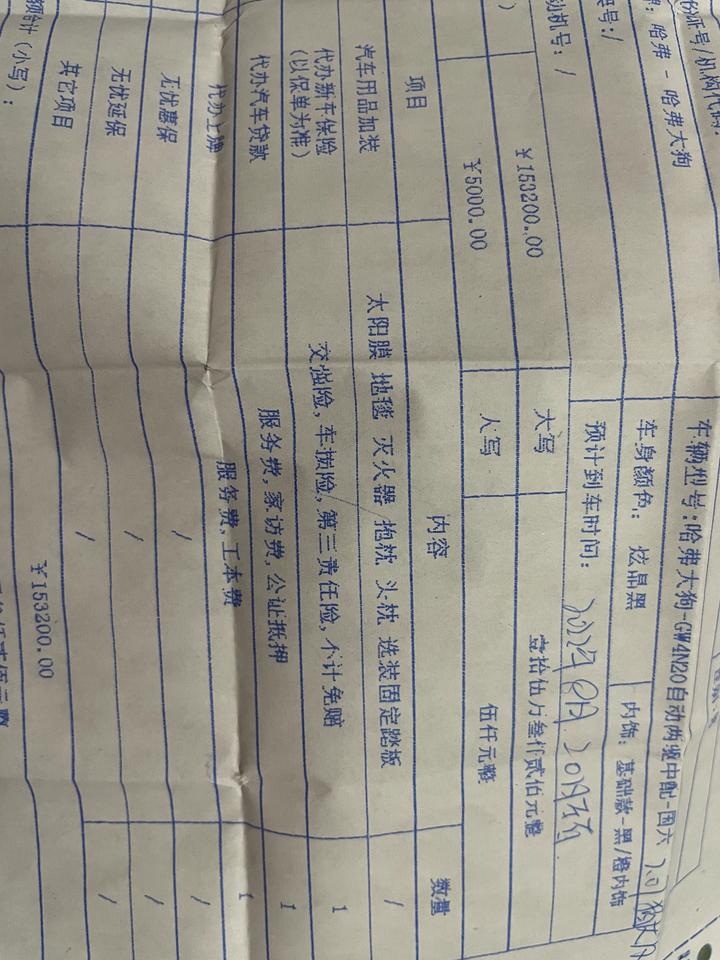 份证号/机构代码:
车辆型号:哈弗大狗-GW4N20自动两驱中配-国六 2.0
哈弗 - 哈弗大狗
车身颜色: 炫晶黑
内饰: 基础款-黑/橙内饰
架号:/
预计到车时间:
动机号: /
￥153200.00
大写
壹拾伍万叁仟贰佰元整
￥5000.00
大写
伍仟元整
项目
内容
数量
汽车用品加装
太阳膜 地毯 灭火器 抱枕 头枕 选装固定踏板
/
代办新车保险
(以保单为准)
交强险,车损险,第三责任险,不计免赔
1
代办汽车贷款
服务费,家访费,公证抵押
1
代办上牌
服务费,工本费
1
无忧惠保
/
/
无忧延保
/
/
其它项目
/
/
额合计(小写):
￥153200.00